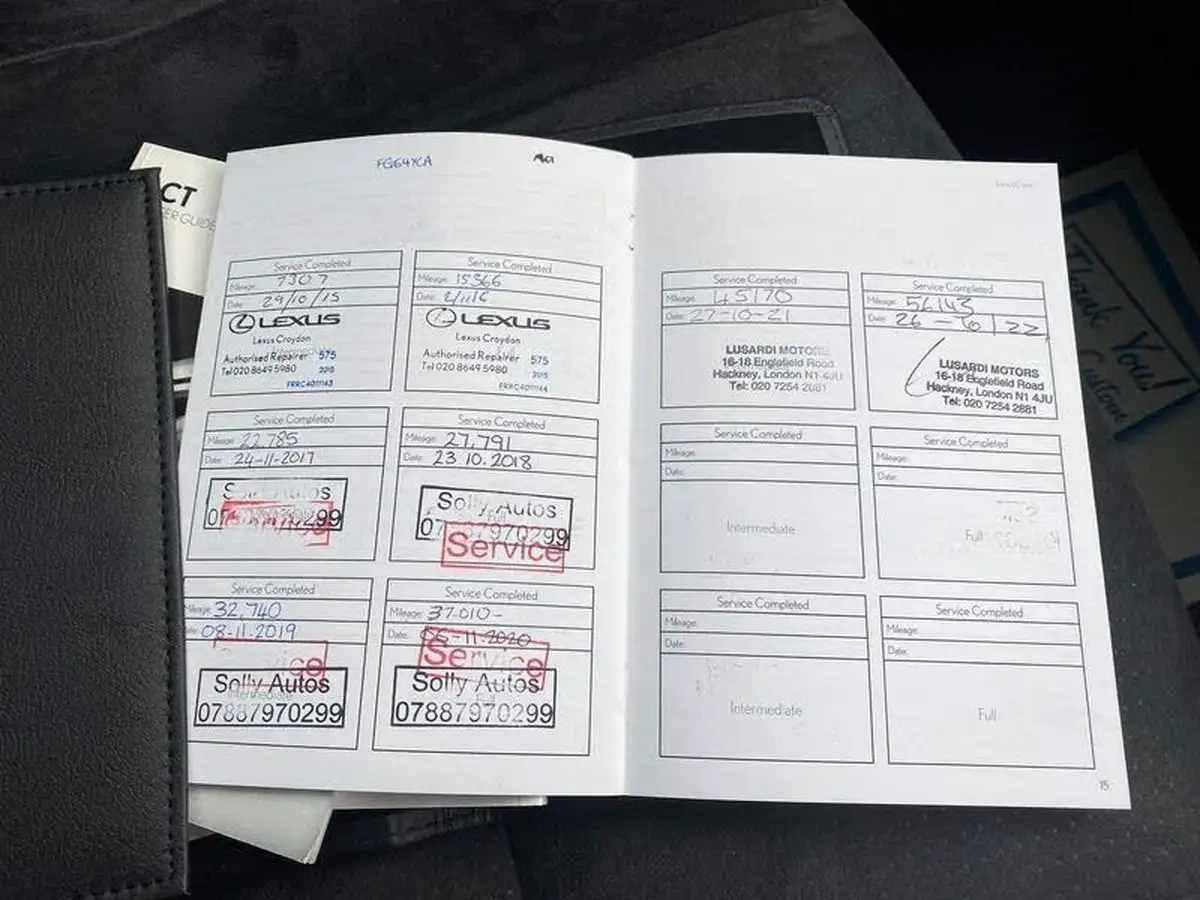 CT
ER GUIDE
FG64YCA
Service Completed
Mileage: 7307
Date: 29/10/15
LEXUS
Lexus Croydon
Authorised Repairer 575
Tel 020 8649 5980 2015
FRRC4011143
Service Completed
Mileage: 15366
Date: 2/11/16
LEXUS
Lexus Croydon
Authorised Repairer 575
Tel 020 8649 5980 2015
FRRC4011144
Service Completed
Mileage: 22,785
Date: 24-11-2017
Service Completed
Mileage: 27,791
Date: 23.10.2018
Solly Autos
Full
07887970299
Service
Service Completed
Mileage: 32,740
08-11.2019
Solly Autos
Intermediate
07887970299
Service Completed
Mileage: 37.010-
Date: 05-11.2020
Service
Solly Autos
Full
07887970299
LexusCare
Service Completed
Mileage: 45170
Date: 27-10-21
LUSARDI MOTORS
16-18 Englefield Road
Hackney, London N1 4JU
Tel: 020 7254 2881
Service Completed
Mileage: 56143
Date: 26-6/22
LUSARDI MOTORS
16-18 Englefield Road
Hackney, London N1 4JU
Tel: 020 7254 2881
Service Completed
Mileage:
Date:
Intermediate
Service Completed
Mileage:
Date:
Full
Service Completed
Mileage:
Date:
Intermediate
Service Completed
Mileage:
Date:
Full
15
Thank You!